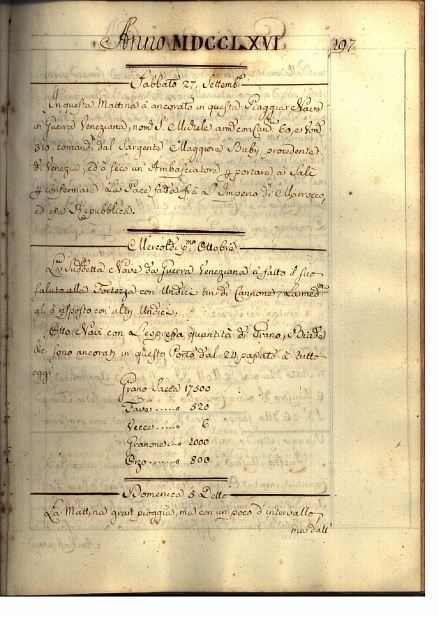 Anno MDCCLXVI. 297.
Sabbato 27. Settembre
In questa Mattina à ancorato in questa Piaggia Nave
in Guerra Veneziana, nom.
310. comand. dal Sargente Maggiore Buby, procedente
di Venezia, ed à seco un Ambasciatore portare a Salè
confermare La Pace fra L'Imperio di Marrocco,
ed essa Repubblica.
Mercoldì p.mo Ottobre
La suddetta Nave da Guerra Veneziana à fatto il suo
saluto alla Fortezza con Undici tiri di Cannone, La
gli à risposto con altri Undici.
Otto Navi con L'espressa quantità di Grano, e Biade
sono ancorati in questo Porto dal 24 passato à tutto
oggi
Grano Sacca 17500
Fave " 520
Vecce " 6
Granone " 2000
Orzo " 800
Domenica 5 Detto
La Mattina gran pioggia, ma con un poco d'intervallo,